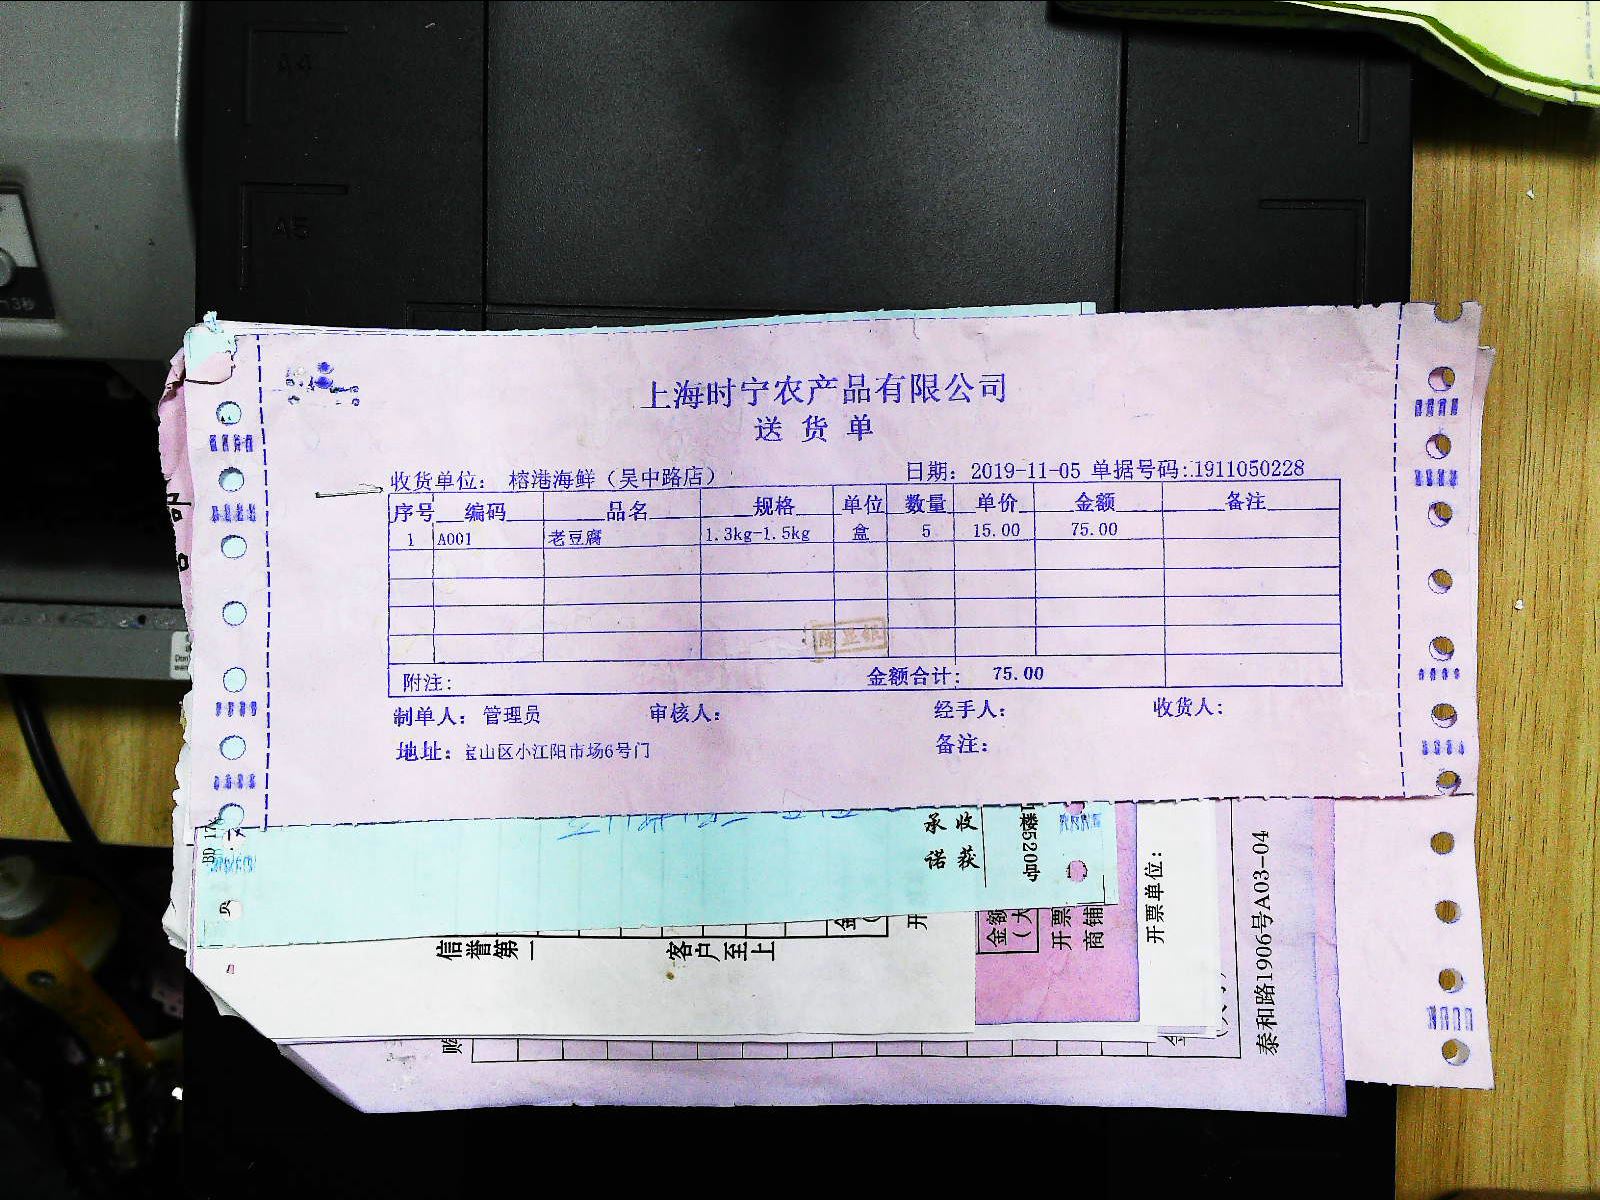 A4
A5
上海时宁农产品有限公司
送货单
收货单位： 榕港海鲜（吴中路店）
日期：2019-11-05 单据号码:1911050228
序号 编码 品名 规格 单位 数量 单价 金额 备注
1 A001 老豆腐 1.3kg-1.5kg 盒 5 15.00 75.00
附注: 金额合计: 75.00
制单人：管理员 审核人: 经手人: 收货人:
地址：宝山区小江阳市场6号门 备注:
承诺
收获
楼520号
信誉第一
客户至上
开票
商铺
开票单位：
泰和路1906号A03-04